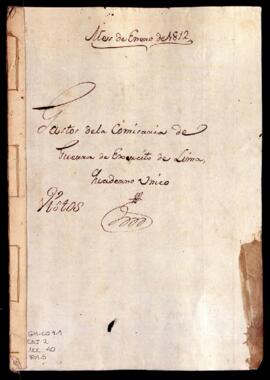 Mes de Enero de 1812
Gastos de la Comisaria de
Guerra de Exercito de Lima,
Quaderno Unico
Vistos
CAJ 2